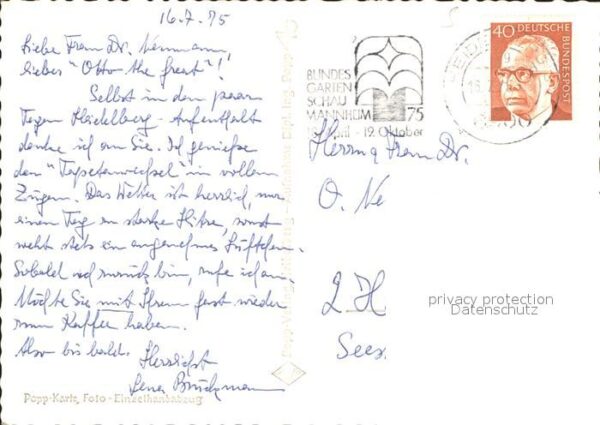 16.7.75
Liebe Frau Dr. Neumann,
lieber "Otto the great"!
Selbst in den paar
Tagen Heidelberg-Aufenthalt
denke ich an Sie. Ich genieße
den "Tapetenwechsel" in vollen
Zügen. Das Wetter ist herrlich, nur
einen Tag zu starke Hitze, sonst
weht stets ein angenehmes Lüftchen.
Sobald ich zurück bin, rufe ich an.
Möchte Sie mit Ihrem gast wieder
zum Kaffee haben.
Also bis bald. Herzlichst
Lena Brückmann
Popp-Karte, Foto-Einzelhandabzug
BUNDES
GARTEN
SCHAU
MANNHEIM 75
- 19. Oktober
40 DEUTSCHE BUNDESPOST
Herrn u Frau Dr.
O. Ne
2 H
privacy protection
Datenschutz